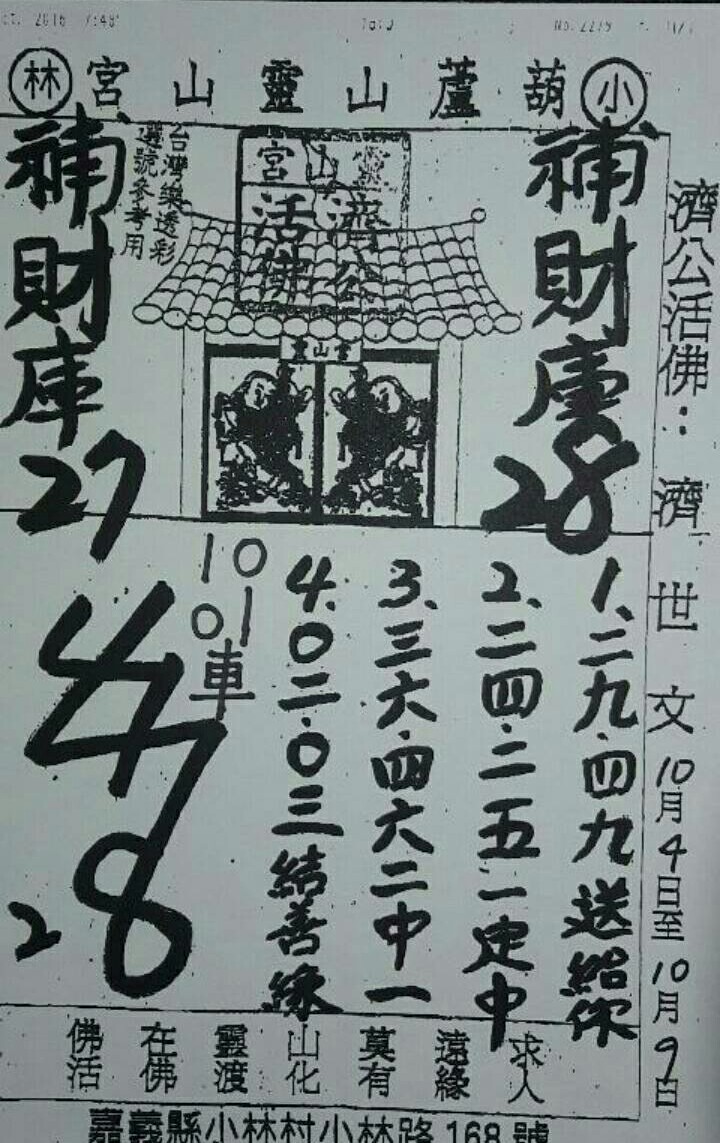 ct. 2016 7:48
No. 2279
小 葫蘆山靈山宮 林
濟公活佛：濟世文10月4日至10月9日
補財庫28
濟公
活佛
台灣樂透彩
選號參考用
補財庫27
1、二九.四九送給你
2、二四.二五一定中
3、三六.四六二中一
4、0二.0三結善緣
10
01車
47
8
2
佛在靈山莫遠求
活佛渡化有緣人
嘉義縣小林村小林路168號